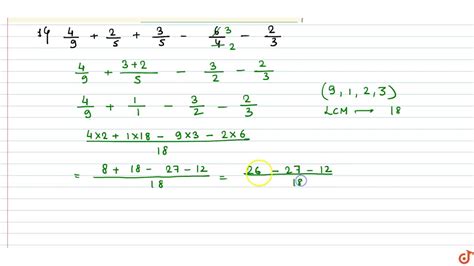 14 4/9 + 2/5 + 3/5 - 6̸ 3/4̸ 2 - 2/3
4/9 + 3+2/5 - 3/2 - 2/3
4/9 + 1/1 - 3/2 - 2/3
(9, 1, 2, 3)
LCM → 18
4×2 + 1×18 - 9×3 - 2×6/18
= 8 + 18 - 27 - 12/18 = 26 - 27 - 12/18